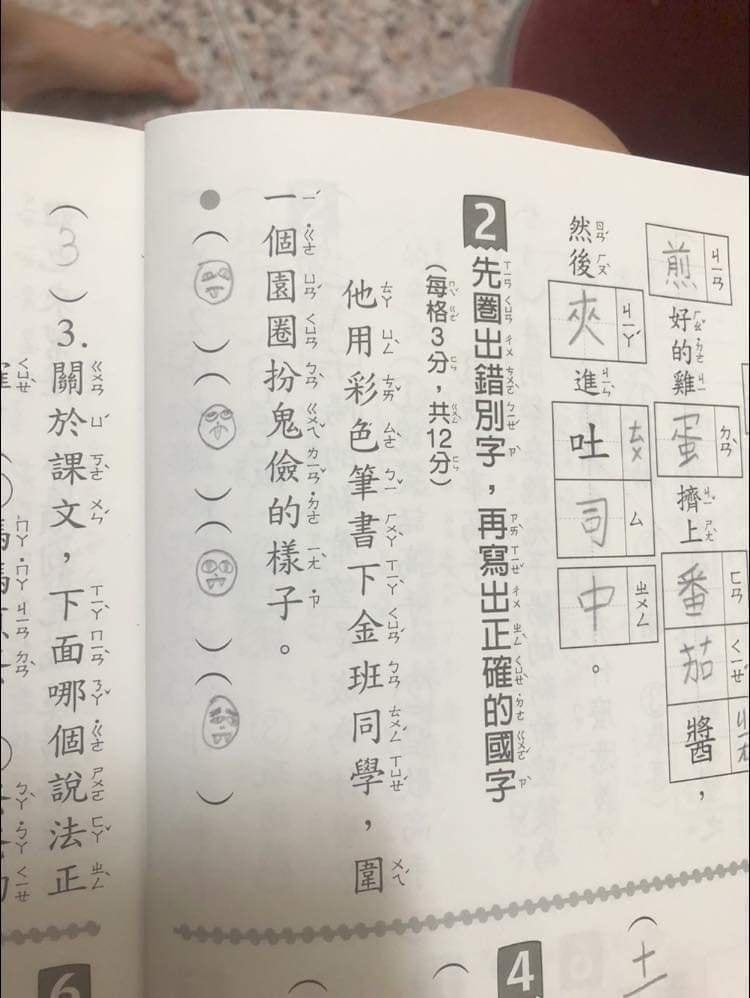 煎好的雞蛋擠上番茄醬，
然後夾進吐司中。
2 先圈出錯別字，再寫出正確的國字
（每格3分，共12分）
他用彩色筆書下金班同學，圍
一個園圈扮鬼儉的樣子。
●（ ）（ ）（ ）（ ）
4
（3）3.關於課文，下面哪個說法正
6